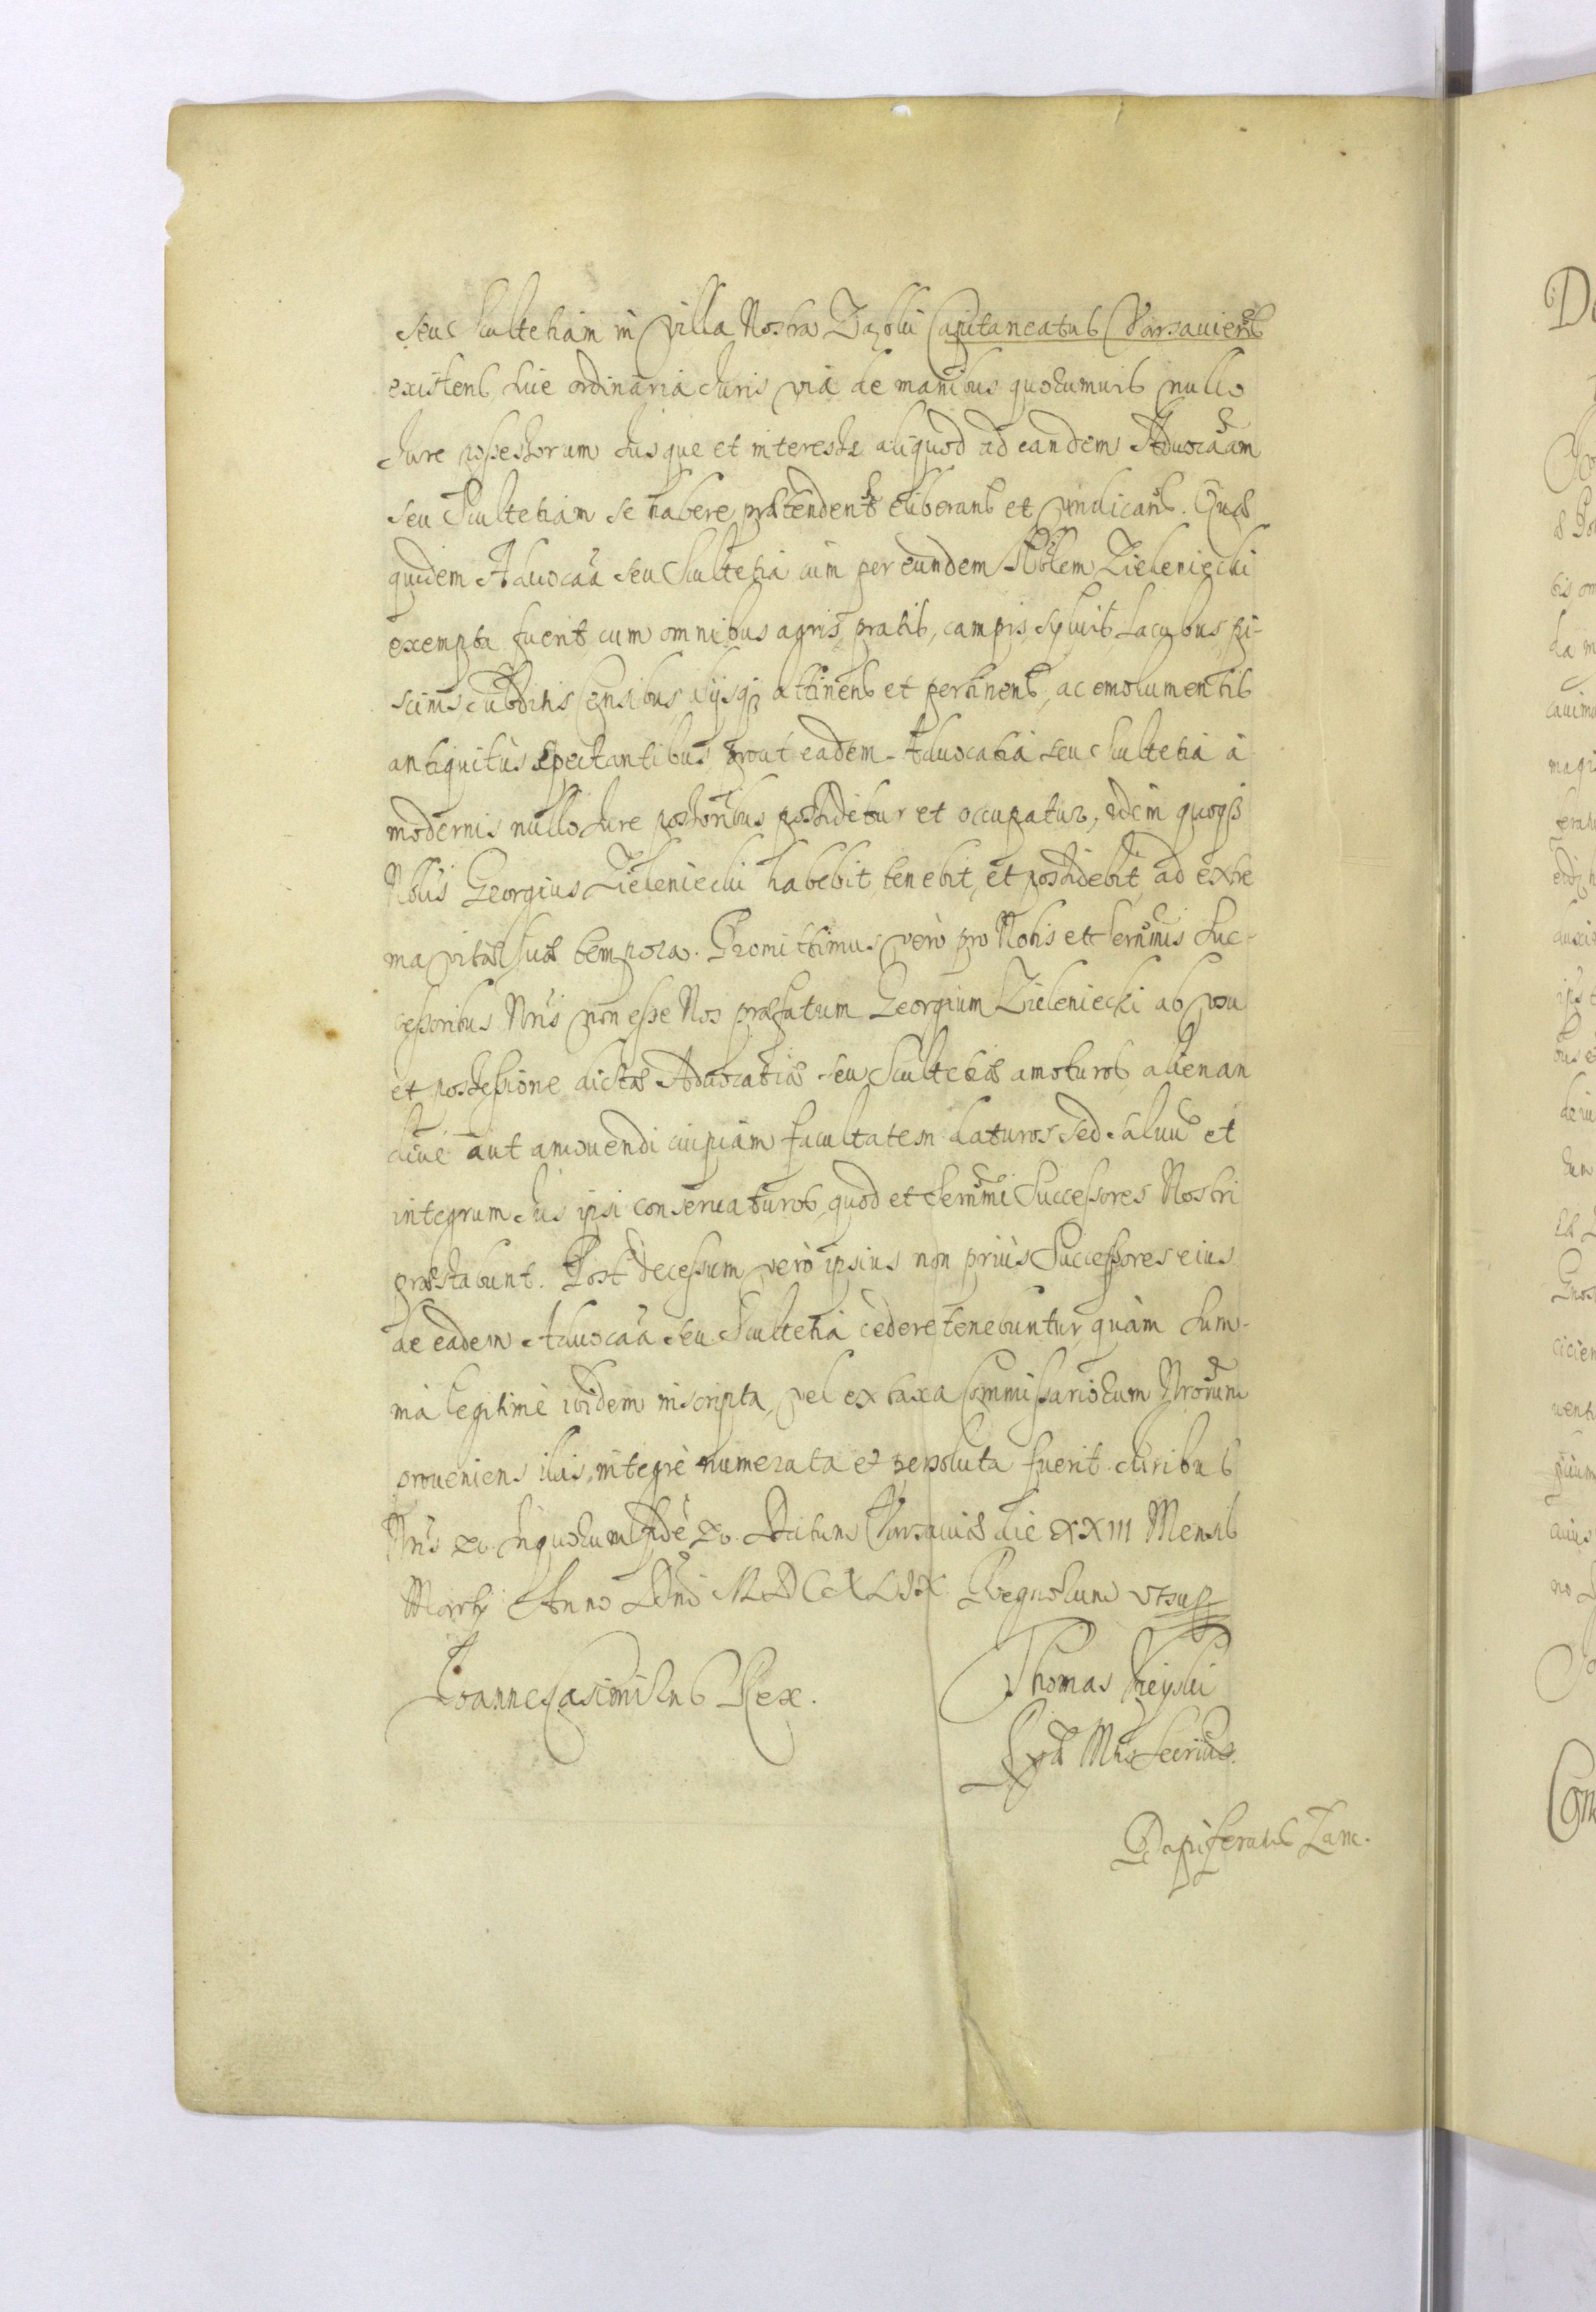 seu Scultetiam in Villa Nostra Capitaneatus Varsauiens
existens, siue ordinaria Iuris via de manibus quorumuis nullo
Iure possessorum Iusque et interesse aliquod ad eandem Aduocaam
seu Scultetiam se habere prætendent eliberans et vindicans. Quæ
quidem Aduocaa seu Scultetia cum per eundem Nblem Zieleniecki
exempta fuerit cum omnibus agris, pratis, campis, syluis, Lacubus, pi-
scinis, Subditis, Censibus, alijsq3 attinens et pertinens, ac emolumentis
antiquitùs spectantibus, prout eadem Aduocatia seu Scultetia à
modernis nullo Iure possoribus possidetur et occupatur, idem quoq3
Nblis Georgius Zieleniecki habebit, tenebit, et possidebit ad extre
ma vitæ suæ tempora. Promittimus verò pro Nobis et Sermis Suc-
cessoribus Nris non esse Nos præfatum Georgium Zieleniecki ab vsu
et possessione dictæ Aduocatiæ seu Scultetiæ amoturos, alienan
diue aut amouendi cuipiam facultatem daturos, sed saluu et
integrum Ius ipsi conseruaturos, quod et Sermi Successores Nostri
præstabunt. Post decessum verò ipsius non priùs Successores eius
de eadem Aduocaa seu Scultetia cedere tenebuntur, quàm Sum-
ma legitimè ibidem inscripta, vel ex taxa Commissariorum Nrorum
proueniens illis, integrè numerata et persoluta fuerit. Iuribus
Nris &c. In quorum fide &c. Datum Varsauiæ die XXIII Mensis
Martij Anno Dni MDCXLIX. Regnorum vt sup
Ioannes Casimirus Rex.
Thomas
SRæ Mtis Secrius.
Dapiferatus Zam.